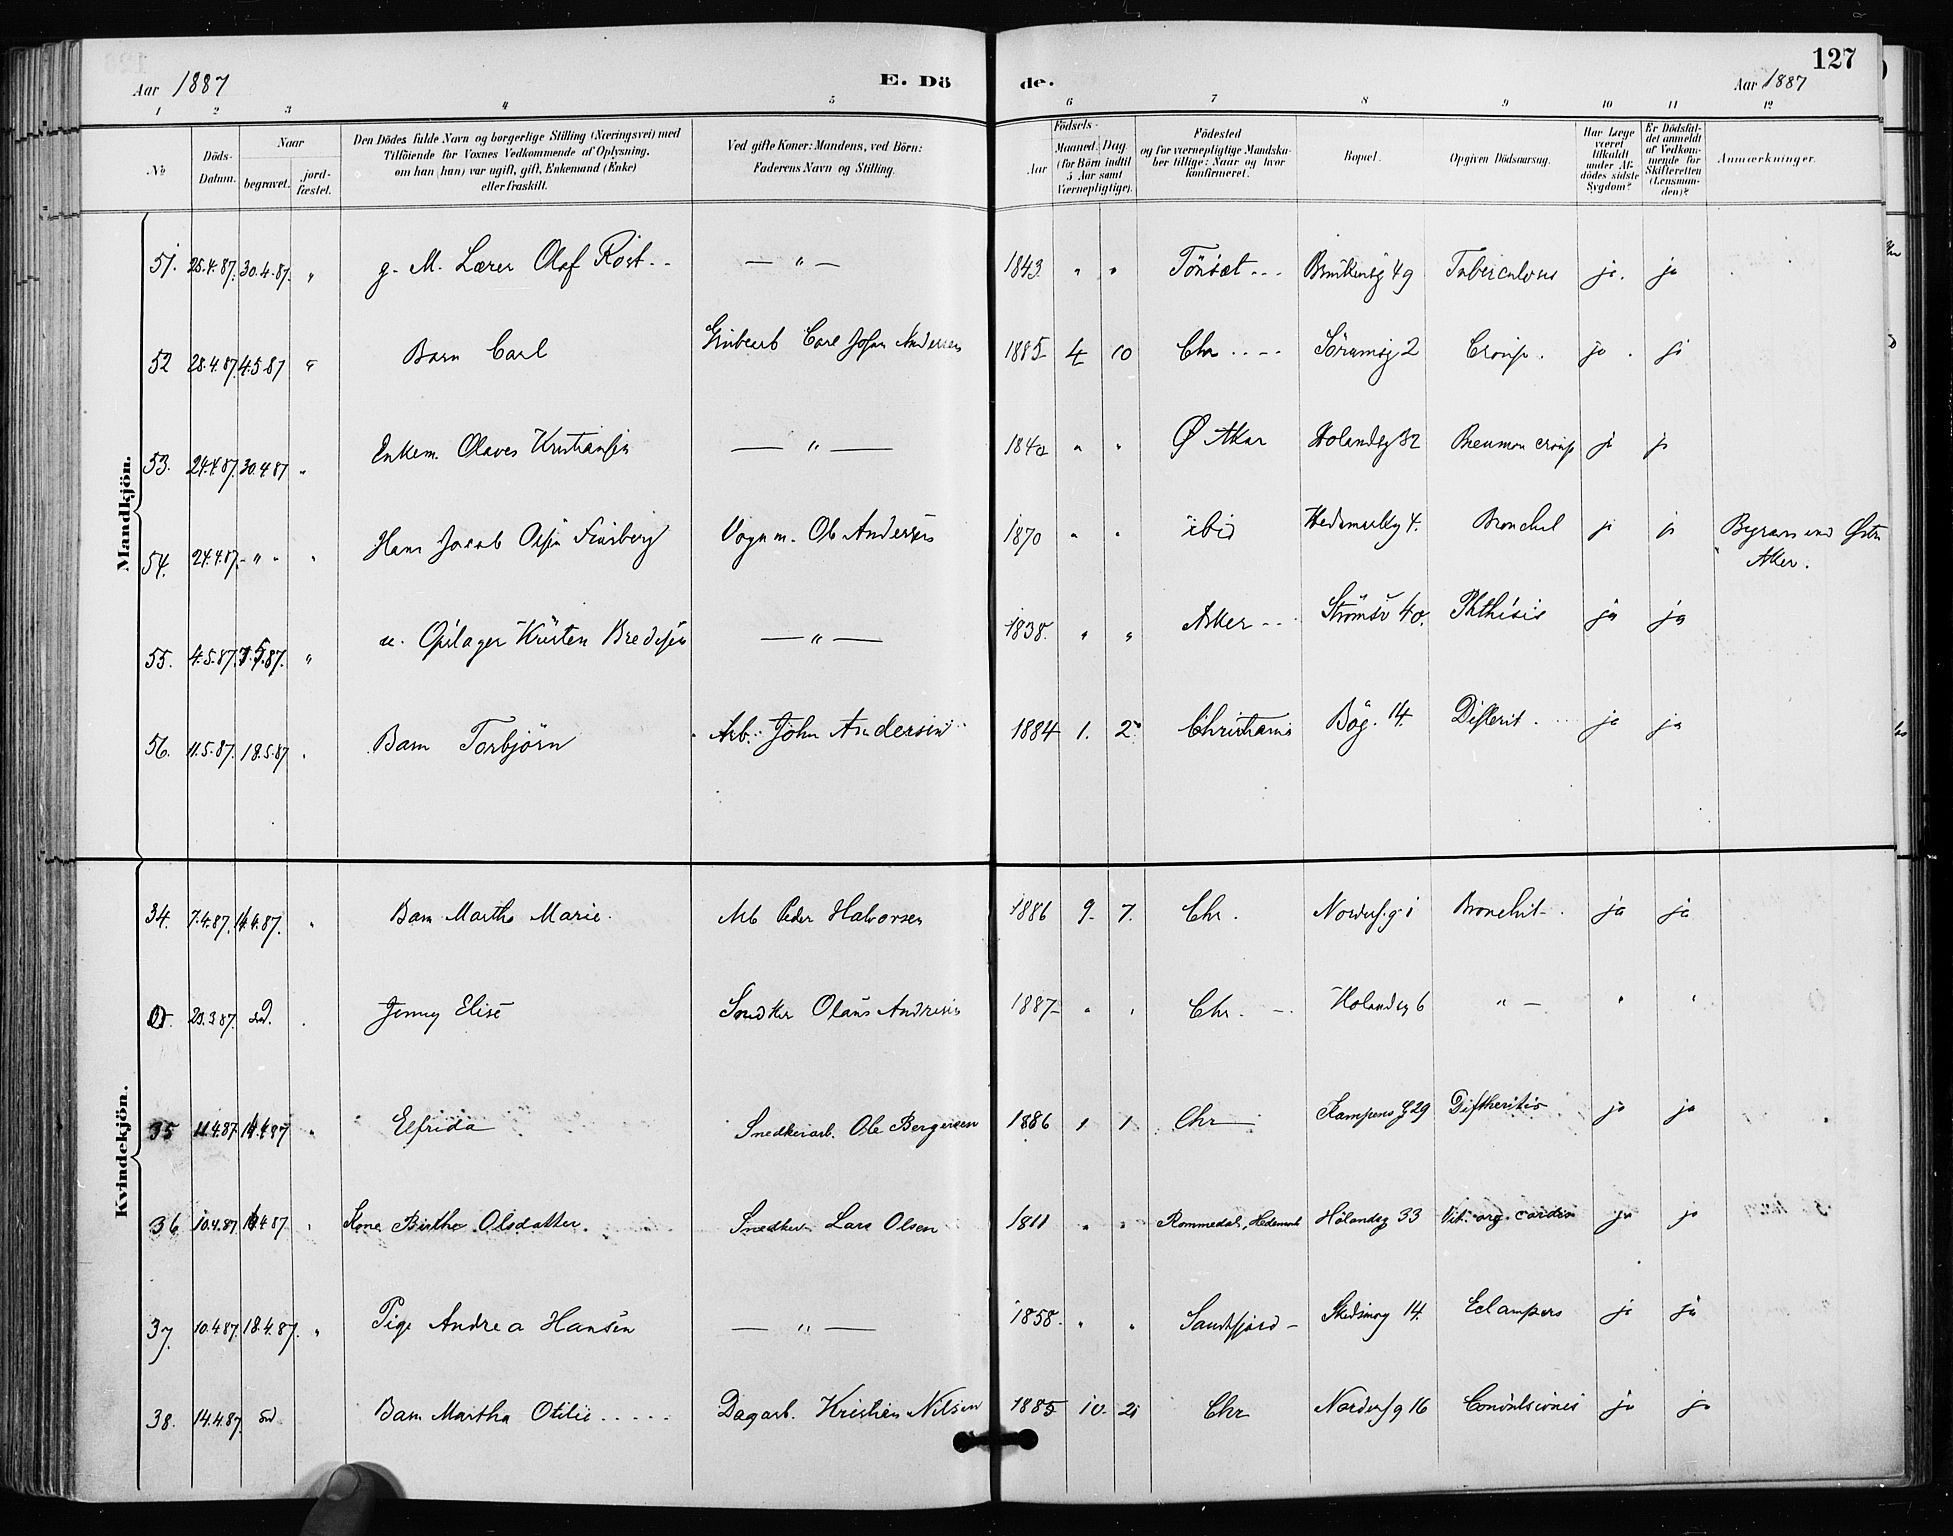 127
Aar 1887
E. Dö
de.
Aar 1887
1 2 3 4 5 6 7 8 9 10 11 12
No
Döds-
Datum.
Naar
begravet.
jord-
fæstet.
Den Dödes fulde Navn og borgerlige Stilling (Næringsvei) med
Tilföiende for Voxnes Vedkommende af Oplysning,
om han (hun) var ugift, gift, Enkemand (Enke)
eller fraskilt.
Ved gifte Koner: Mandens, ved Börn:
Faderens Navn og Stilling.
Födsels-
Aar
Maaned. Dag
(for Börn indtil
5 Aar samt
Værnepligtige).
Födested
og for værnepligtige Mandska-
ber tillige: Naar og hvor
konfirmeret.
Bopæl.
Opgiven Dödsaarsag.
Har Læge
været
tilkaldt
under Af-
dödes sidste
Sygdom?
Er Dödsfal-
det anmeldt
af Vedkom-
mende for
Skifteretten
(Lensman-
den)?
Anmærkninger.
Mandkjön.
51. 25.4.87. 30.4.87. " g. M. Lærer Olaf Rost -- — " — 1843 " " Tönset --- 49 Tuberculosis ja. ja
52 28.4.87. 4.5.87 " Barn Carl Carl Johan Andersen 1885 4 10 Chr ---- Sörumsg 2 Croup. ja. ja
53. 24.4.87. 30.4.87 " Enkem. Olaves Kristiansen — " — " " Ø Aker Holandsg 32 Pneumon croup ja ja
54. 24.4.87. - " - " Hans Jacob Olsen Vognm. Ole Andersen 1870 " " ibid Hedemarkg 4. Bronchit ja ja Begraves ved Østre
Aker.
55. 4.5.87. 7.5.87. " u. Oplager Kristen Bredesen — " — 1838. " " Asker --- Strömsv 40. Phthisis ja ja
56. 11.5.87. 18.5.87 " Barn Torbjörn Arb. John Andersen 1884 1. 2 Christiania Bög. 14. Difterit. ja ja
Kvindekjön.
34. 7.4.87. 14.4.87. " Barn Martha Marie. Arb Peder Halvorsen 1886 9. 7. Chr. Norderhfg 1 Bronchit -. ja ja
D. 23.3.87. Jenny Elise Snedker Olaus Andresen 1887 " " Chr. -. Holandsg 6 " — " "
35 11.4.87 14.4.87 " Elfrida Snedkerarb. Ole Bergersen 1886 1 1 Chr — Kampens g 29 Diftheritis ja ja
36 10.4.87 14.4.87 " Kone Berthe Olsdatter. Snedker Lars Olsen 1811 " " Rommedal, Hedemark Hölandsg 33 Vit. org. cordis ja ja
37. 10.4.87. 18.4.87. " Pige Andrea Hansen — " — 1858. " " Sandefjord - Skedsmog 14. Eclampsis ja ja
38. 14.4.87. Barn Martha Otilie ..... Dagarb. Kristian Nilsen 1885 10. 21 Chr Norderhfg 16 Convulsiones ja ja